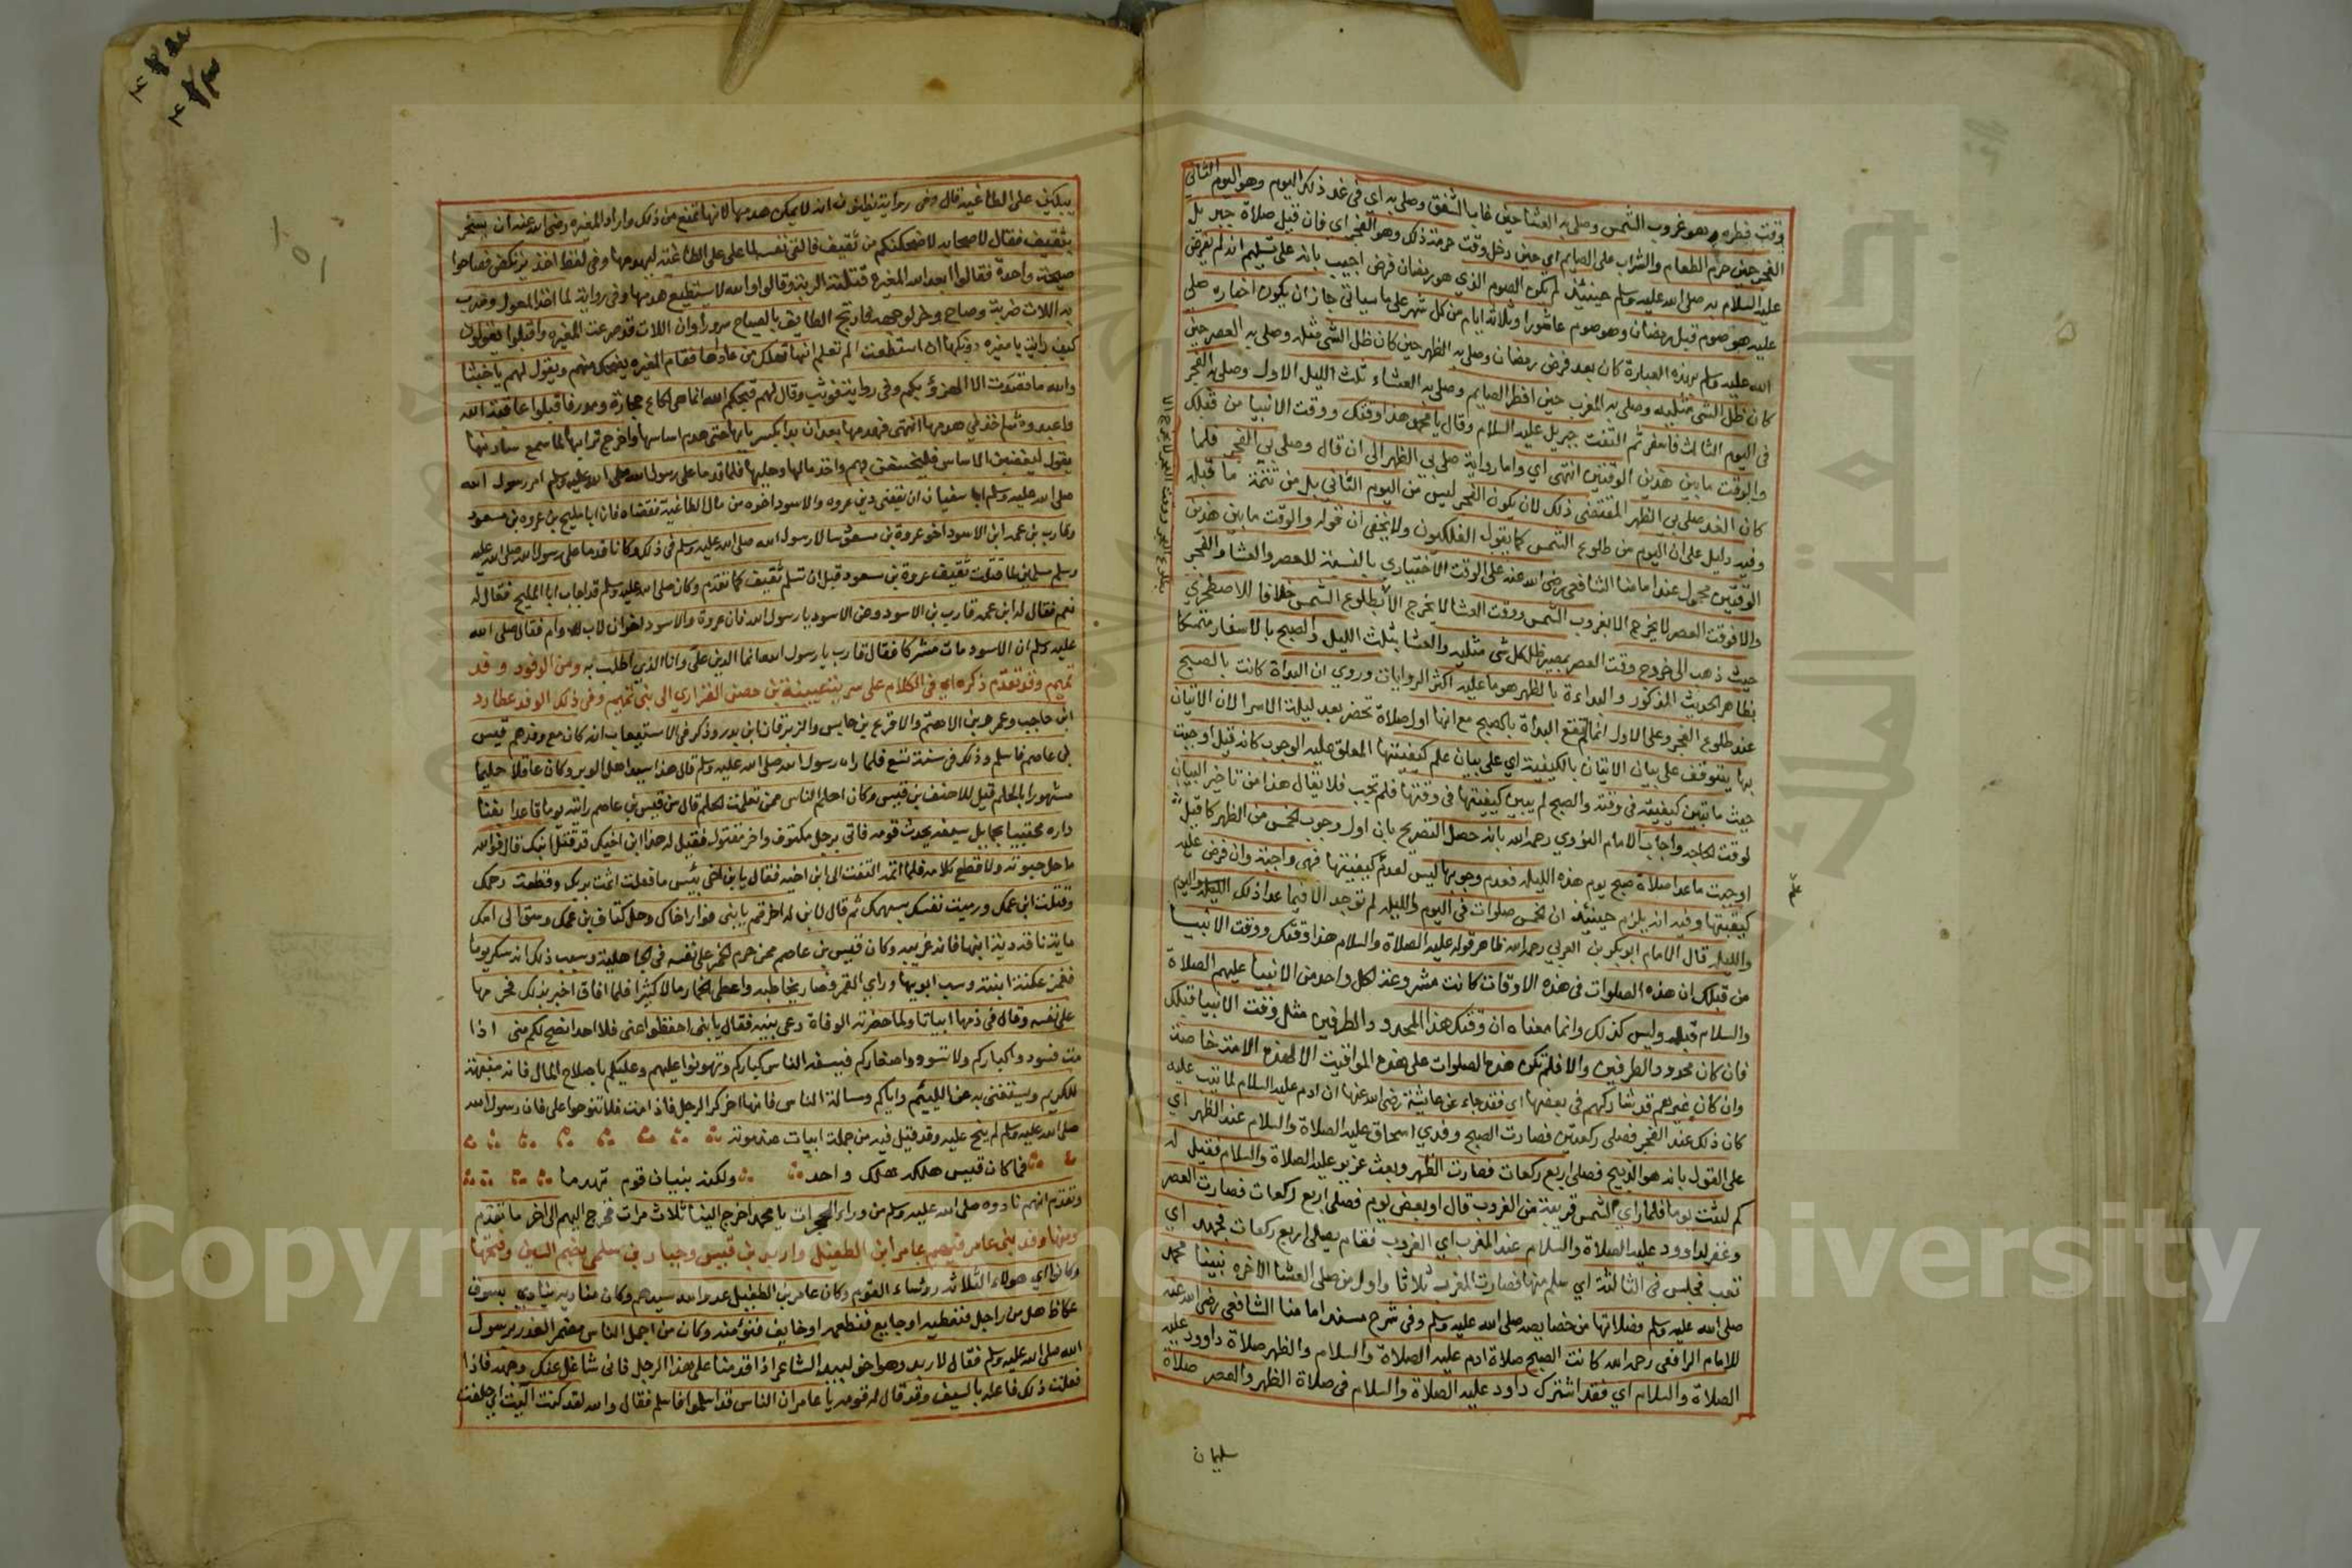 وقت فطره وهو غروب الشمس وصلى به العشا حين غاب الشفق وصلى به اي في غد ذلك اليوم وهو اليوم الثاني
الفجر حين حرم الطعام والشراب على الصايم اي حين دخل وقت حرمة ذلك وهو الفجر اي فان قيل صلاة جبريل
عليه السلام به صلى الله عليه وسلم حينئذ لم يكن الصوم الذي هو رمضان فرض اجيب بانه على تسليم انه لم يفرض
عليه هو صوم قبل رمضان وهو صوم عاشورا وثلاثة ايام من كل شهر على ما سياتي جاز ان يكون اخباره صلى
الله عليه وسلم بهذه العبارة كان بعد فرض رمضان وصلى به الظهر حين كان ظل الشي مثله وصلى به العصر حين
كان ظل الشي مثليه وصلى به المغرب حين افطر الصايم وصلى به العشاء ثلث الليل الاول وصلى به الفجر
في اليوم الثالث فاسفر ثم التفت جبريل عليه السلام وقال يا محمد هذا وقتك ووقت الانبيا من قبلك
والوقت ما بين هذين الوقتين انتهى اي واما رواية صلى بي الظهر الى ان قال وصلى بي الفجر فلما
كان الغد صلى بي الظهر المقتضى ذلك لان يكون الفجر ليس من اليوم الثاني بل من تتمة ما قبله
وفيه دليل على ان اليوم من طلوع الشمس كما يقول الفلكيون ولا يخفى ان قوله والوقت ما بين هذين
الوقتين محمول عند امامنا الشافعي رضي الله عنه على الوقت الاختياري بالنسبة للعصر والعشا والفجر
والا فوقت العصر لا يخرج الا بغروب الشمس ووقت العشا لا يخرج الا بطلوع الشمس خلافا للاصطخري
حيث ذهب الى خروج وقت العصر بمصير ظل كل شي مثليه والعشا بثلث الليل والصبح بالاسفار متمسكا
بظاهر الحديث المذكور والبداءة بالظهر هو ما عليه اكثر الروايات وروي ان البداة كانت بالصبح
عند طلوع الفجر وعلى الاول انما لم تقع البداة بالصبح مع انها اول صلاة تحضر بعد ليلة الاسرا لان الاتيان
بها يتوقف على بيان الاتيان بالكيفية اي على بيان علم كيفيتها المعلق عليه الوجوب كانه قيل اوجبت
حيث ما تبين كيفيته في وقته والصبح لم يبين كيفيتها في وقتها فلم تجب فلا يقال هذا من تاخير البيان
لوقت الحاجه واجاب الامام النووي رحمه الله بانه حصل التصريح بان اول وجوب الخمس من الظهر كانه قيل
اوجبت ما عدا صلاة صبح يوم هذه الليله فعدم وجوبها ليس لعدم كيفيتها فهي واجبة وان فرض عليه
كيفيتها وفيه انه يلزم حينئذ ان الخمس صلوات في اليوم والليله لم توجد الا فيما عدا ذلك الليله واليوم
والليله قال الامام ابو بكر بن العربي رحمه الله ظاهر قوله عليه الصلاة والسلام هذا وقتك ووقت الانبيا
من قبلك ان هذه الصلوات في هذه الاوقات كانت مشروعة لكل واحد من الانبيا عليهم الصلاة
والسلام قبله وليس كذلك وانما معناه ان وقتك هذا المحدود الطرفين مثل وقت الانبيا قبلك
فان كان محدود الطرفين والا فلم تكن هذه الصلوات على هذه المواقيت الا لهذه الامة خاصة
وان كان غيرهم قد شاركهم في بعضها اي فقد جاء عن عايشة رضي الله عنها ان ادم عليه السلام لما تيب عليه
كان ذلك عند الفجر فصلى ركعتين فصارت الصبح وفدي اسحاق عليه الصلاة والسلام عند الظهر اي
على القول بانه هو الذبيح فصلى اربع ركعات فصارت الظهر وبعث عزير عليه الصلاة والسلام فقيل له
كم لبثت يوما فلما راي الشمس قريبة من الغروب قال او بعض يوم فصلى اربع ركعات فصارت العصر
وغفر لداوود عليه الصلاة والسلام عند المغرب اي الغروب فقام يصلي اربع ركعات فجهد اي
تعب فجلس في الثالثة اي سلم منها فصارت المغرب ثلاثا واول من صلى العشا الاخره نبينا محمد
صلى الله عليه وسلم فصلاتها من خصايصه صلى الله عليه وسلم وفي شرح مسند امامنا الشافعي رضي الله عنه
للامام الرافعي رحمه الله كانت الصبح صلاة ادم عليه الصلاة والسلام والظهر صلاة داوود عليه
الصلاة والسلام اي فقد اشترك داود عليه الصلاة والسلام في صلاة الظهر والعصر صلاة
سليمان
على الطاغية قال وفي رواية يظن ثقيف انه لا يمكن هدمها لانها تمنع من ذلك واراد المغيره رضي الله عنه ان يسخر
بثقيف فقال لاصحابه لاضحكنكم من ثقيف فالقى نفسه لما على على الطاغية ليهدمها وفي لفظ اخذ يرتكض فصاحوا
صيحة واحدة فقالوا ابعد الله المغيرة قتلته الربة وقالوا والله لا يستطيع هدمها وفي رواية لما اخذ المعول وضرب
به اللات ضربة وصاح وخر لوجهه فارتج الطايف بالصياح سرورا وان اللات قد صرعت المغيره واقبلوا يقولون
كيف رايت يا مغيره دونكها ان استطعت الم تعلم انها تهلك من عاداها فقام المغيره يضحك منهم ويقول لهم يا خبثا
والله ما قصدت الا الهزؤ بكم وفي رواية فوثب وقال لهم قبحكم الله انما هي لكاع حجارة ومدر فاقبلوا عافية الله
واعبدوه ثم اخذ في هدمها انتهى فهدمها بعد ان بدا بكسر بابها حتى هدم اساسها واخرج ترابها لما سمع سادنها
يقول ليغضبن الاساس فليخسفن بهم واخذ مالها وحليها فلما قدما على رسول الله صلى الله عليه وسلم امر رسول الله
صلى الله عليه وسلم ابا سفيان ان يقضي دين عروه والاسود اخوه من مال الطاغية فقضاه فان ابا مليح بن عروه بن مسعود
وقارب بن عمه ابن الاسود اخو عروة بن مسعود سالا رسول الله صلى الله عليه وسلم في ذلك وكانا قدما على رسول الله صلى الله عليه
وسلم مسلمين لما قتلت ثقيف عروة بن مسعود قبل ان تسلم ثقيف كما تقدم وكان صلى الله عليه وسلم قد اجاب ابا المليح فقال له
نعم فقال له ابن عمه قارب بن الاسود وعن الاسود يا رسول الله فان عروة والاسود اخوان لاب وام فقال صلى الله
عليه وسلم ان الاسود مات مشركا فقال قارب يا رسول الله انما الدين علي وانا الذي اطلب به ومن الوفود وفد
تميم وقد تقدم ذكره اي في الكلام على سرية عيينة بن حصن الفزاري الى بني تميم وفي ذلك الوفد عطارد
ابن حاجب وعمرو بن الاهتم والاقرع بن حابس والزبرقان بن بدر وذكر في الاستيعاب انه كان مع وفدهم قيس
بن عاصم فاسلم وذلك في سنة تسع فلما راه رسول الله صلى الله عليه وسلم قال هذا سيد اهل الوبر وكان عاقلا حليما
مشهورا بالحلم قيل للاحنف بن قيس وكان احلم الناس ممن تعلمت الحلم قال من قيس بن عاصم رايته يوما قاعدا بفنا
داره محتبيا بحمايل سيفه يحدث قومه فاتي برجل مكتوف واخر مقتول فقيل له هذا ابن اخيك قد قتل ابنك قال فوالله
ما حل حبوته ولا قطع كلامه فلما اتمه التفت الى ابن اخيه فقال يا بن اخي بئس ما فعلت اثمت بربك وقطعت رحمك
وقتلت ابن عمك ورميت نفسك بسهمك ثم قال لابن له اخر قم يا بني فوار اخاك وحل كتاف بن عمك وسق الى امك
ماية ناقة دية ابنها فانه غريبه وكان قيس بن عاصم ممن حرم الخمر على نفسه في الجاهلية وسبب ذلك انه سكر يوما
فغمز عكنة ابنته وسب ابويها وراي القمر فصار يخاطبه واعطى الخمار مالا كثيرا فلما افاق اخبر بذلك فحرمها
على نفسه وقال في ذمها ابياتا ولما حضرته الوفاة دعى بنيه فقال يا بني احفظوا عني فلا احد انصح لكم مني اذا
مت فسودوا كباركم ولا تسودوا صغاركم فيسفه الناس كباركم وتهونوا عليهم وعليكم باصلاح المال فانه منبهة
للكريم ويستغنى به عن الليئم واياكم ومسالة الناس فانها اخر كر الرجل فاذا مت فلا تنوحوا علي فان رسول الله
صلى الله عليه وسلم لم ينح عليه وقد قيل فيه من جملة ابيات عند موته
فما كان قيس هلكه هلك واحد ولكنه بنيان قوم تهدما
وتقدم انهم نادوه صلى الله عليه وسلم من وراء الحجرات يا محمد اخرج الينا ثلاث مرات فخرج اليهم الى اخر ما تقدم
ومنها وفد بني عامر فيهم عامر ابن الطفيل واربد بن قيس وجبار بن سلمى بضم السين وفتحها
وكانوا اي هولاء الثلاثه روءساء القوم وكان عامر بن الطفيل عدو الله سيدهم وكان مناديه ينادي بسوق
عكاظ هل من راجل فنحمله او جايع فنطعمه او خايف فنؤمنه وكان من اجمل الناس مضمر الغدر برسول
الله صلى الله عليه وسلم فقال لاربد وهو اخو لبيد الشاعر اذا قدمنا على هذا الرجل فاني شاغل عنك وجهه فاذا
فعلت ذلك فاعله بالسيف وقد قال له قومه يا عامر ان الناس قد اسلموا فاسلم فقال والله لقد كنت اليت اي حلفت
Copyright © King Saud University
جامعة الملك سعود